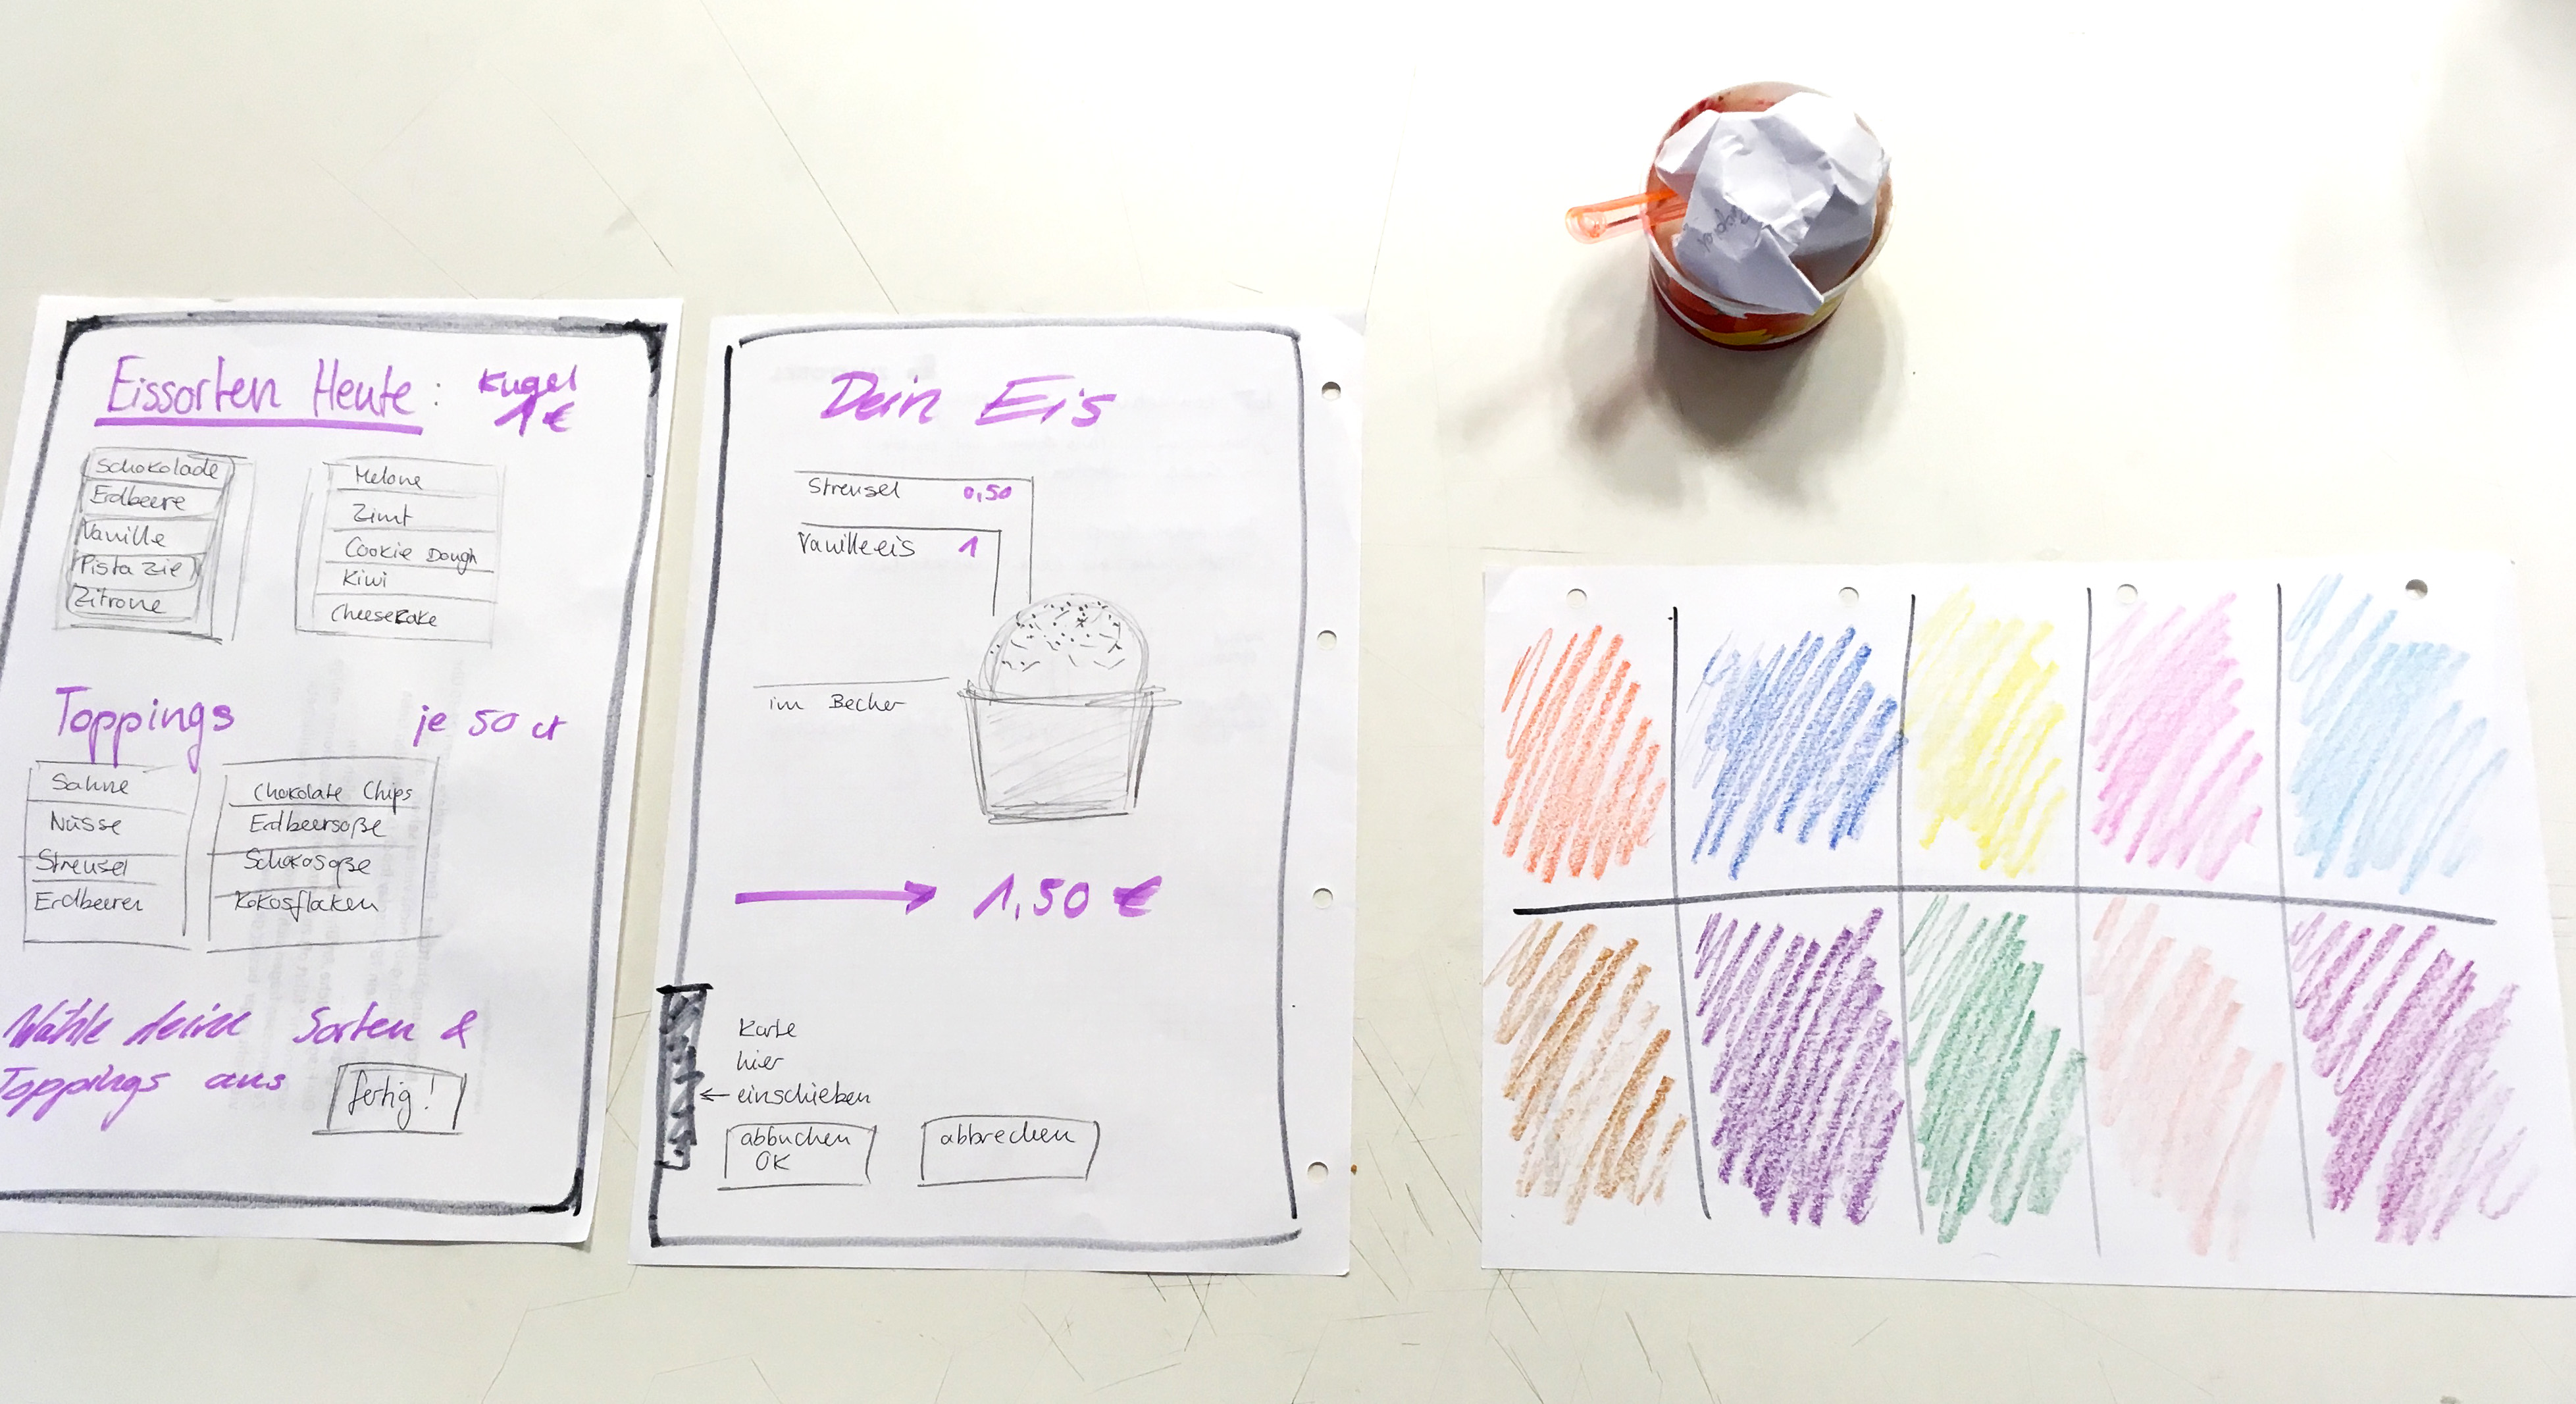 Eissorten Heute: Kugel
1 €
Schokolade
Erdbeere
Vanille
Pistazie
Zitrone
Melone
Zimt
Cookie Dough
Kiwi
Cheesecake
Toppings je 50 ct
Sahne
Nüsse
Streusel
Erdbeeren
Chokolate Chips
Erdbeersoße
Schokosoße
Kokosflaken
Wähle deine Sorten &
Toppings aus
fertig!
Dein Eis
Streusel 0,50
Vanilleeis 1
im Becher
1,50 €
Karte
hier
einschieben
abbuchen
OK
abbrechen